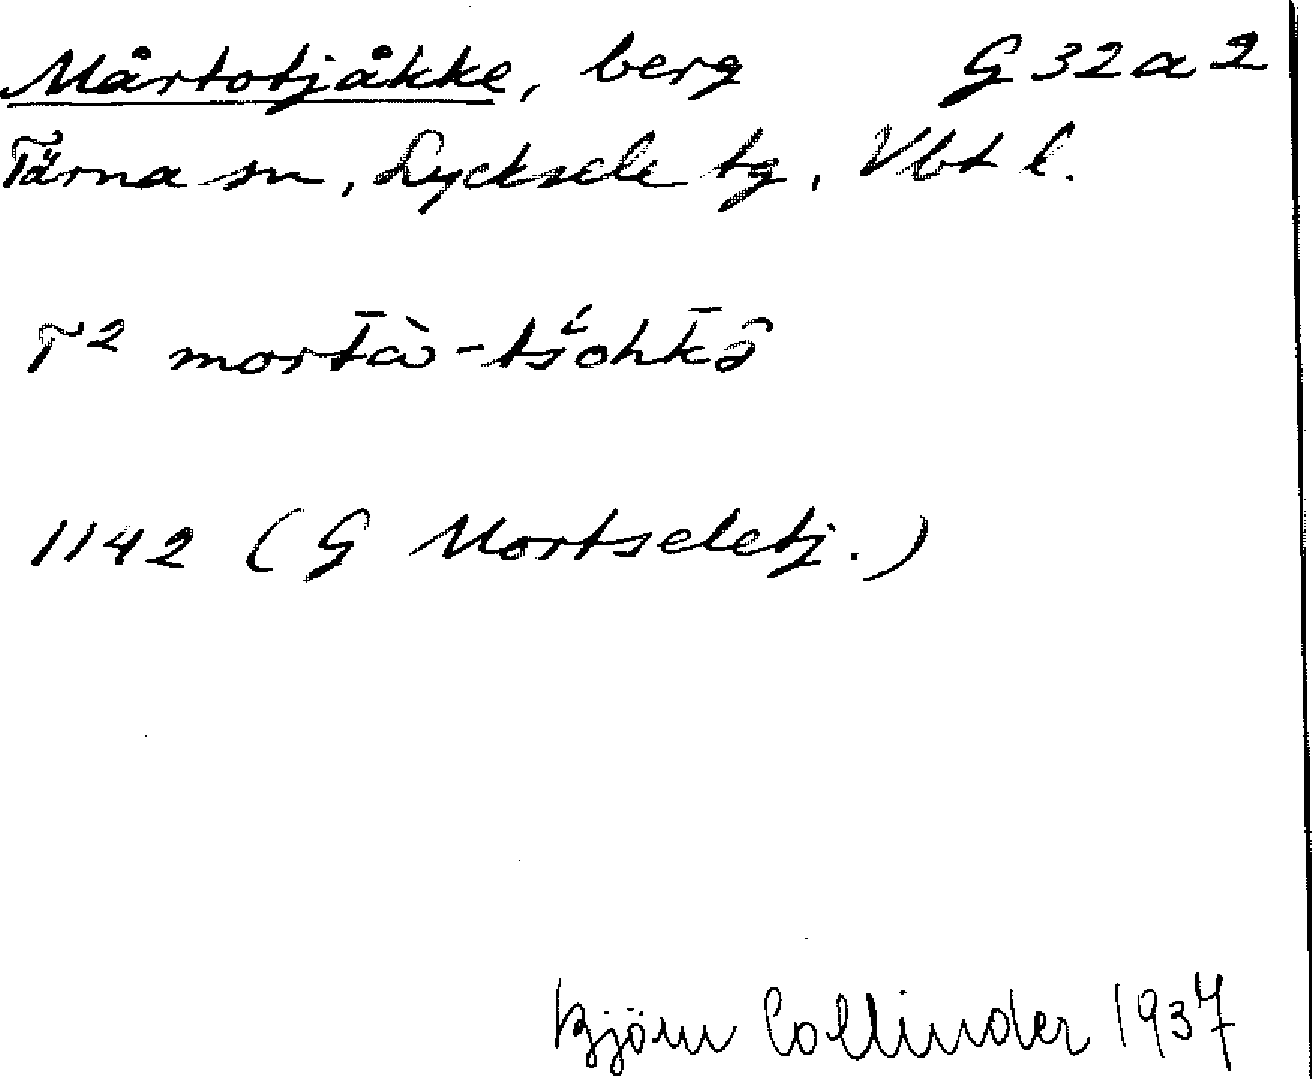 Mårtotjåkke, berg G 32 a 2
Tärna sn, Lycksele tg, Vbt l.
T² mort̄à-tš́oħk̄ə̂
1142 (G Mortseletj.)
Björn Collinder 1937